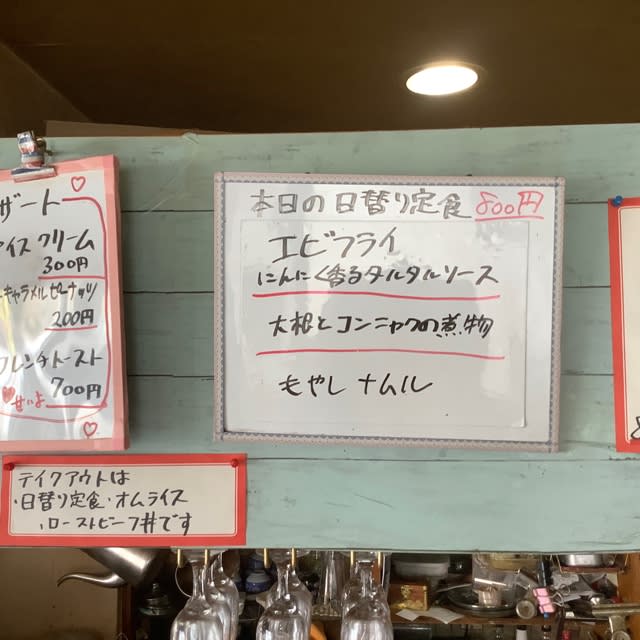 ザート
アイスクリーム
300円
キャラメルピーナッツ
200円
フレンチトースト
甘いよ 700円
本日の日替り定食 800円
エビフライ
にんにく香るタルタルソース
大根とコンニャクの煮物
もやしナムル
テイクアウトは
・日替り定食・オムライス
・ローストビーフ丼です